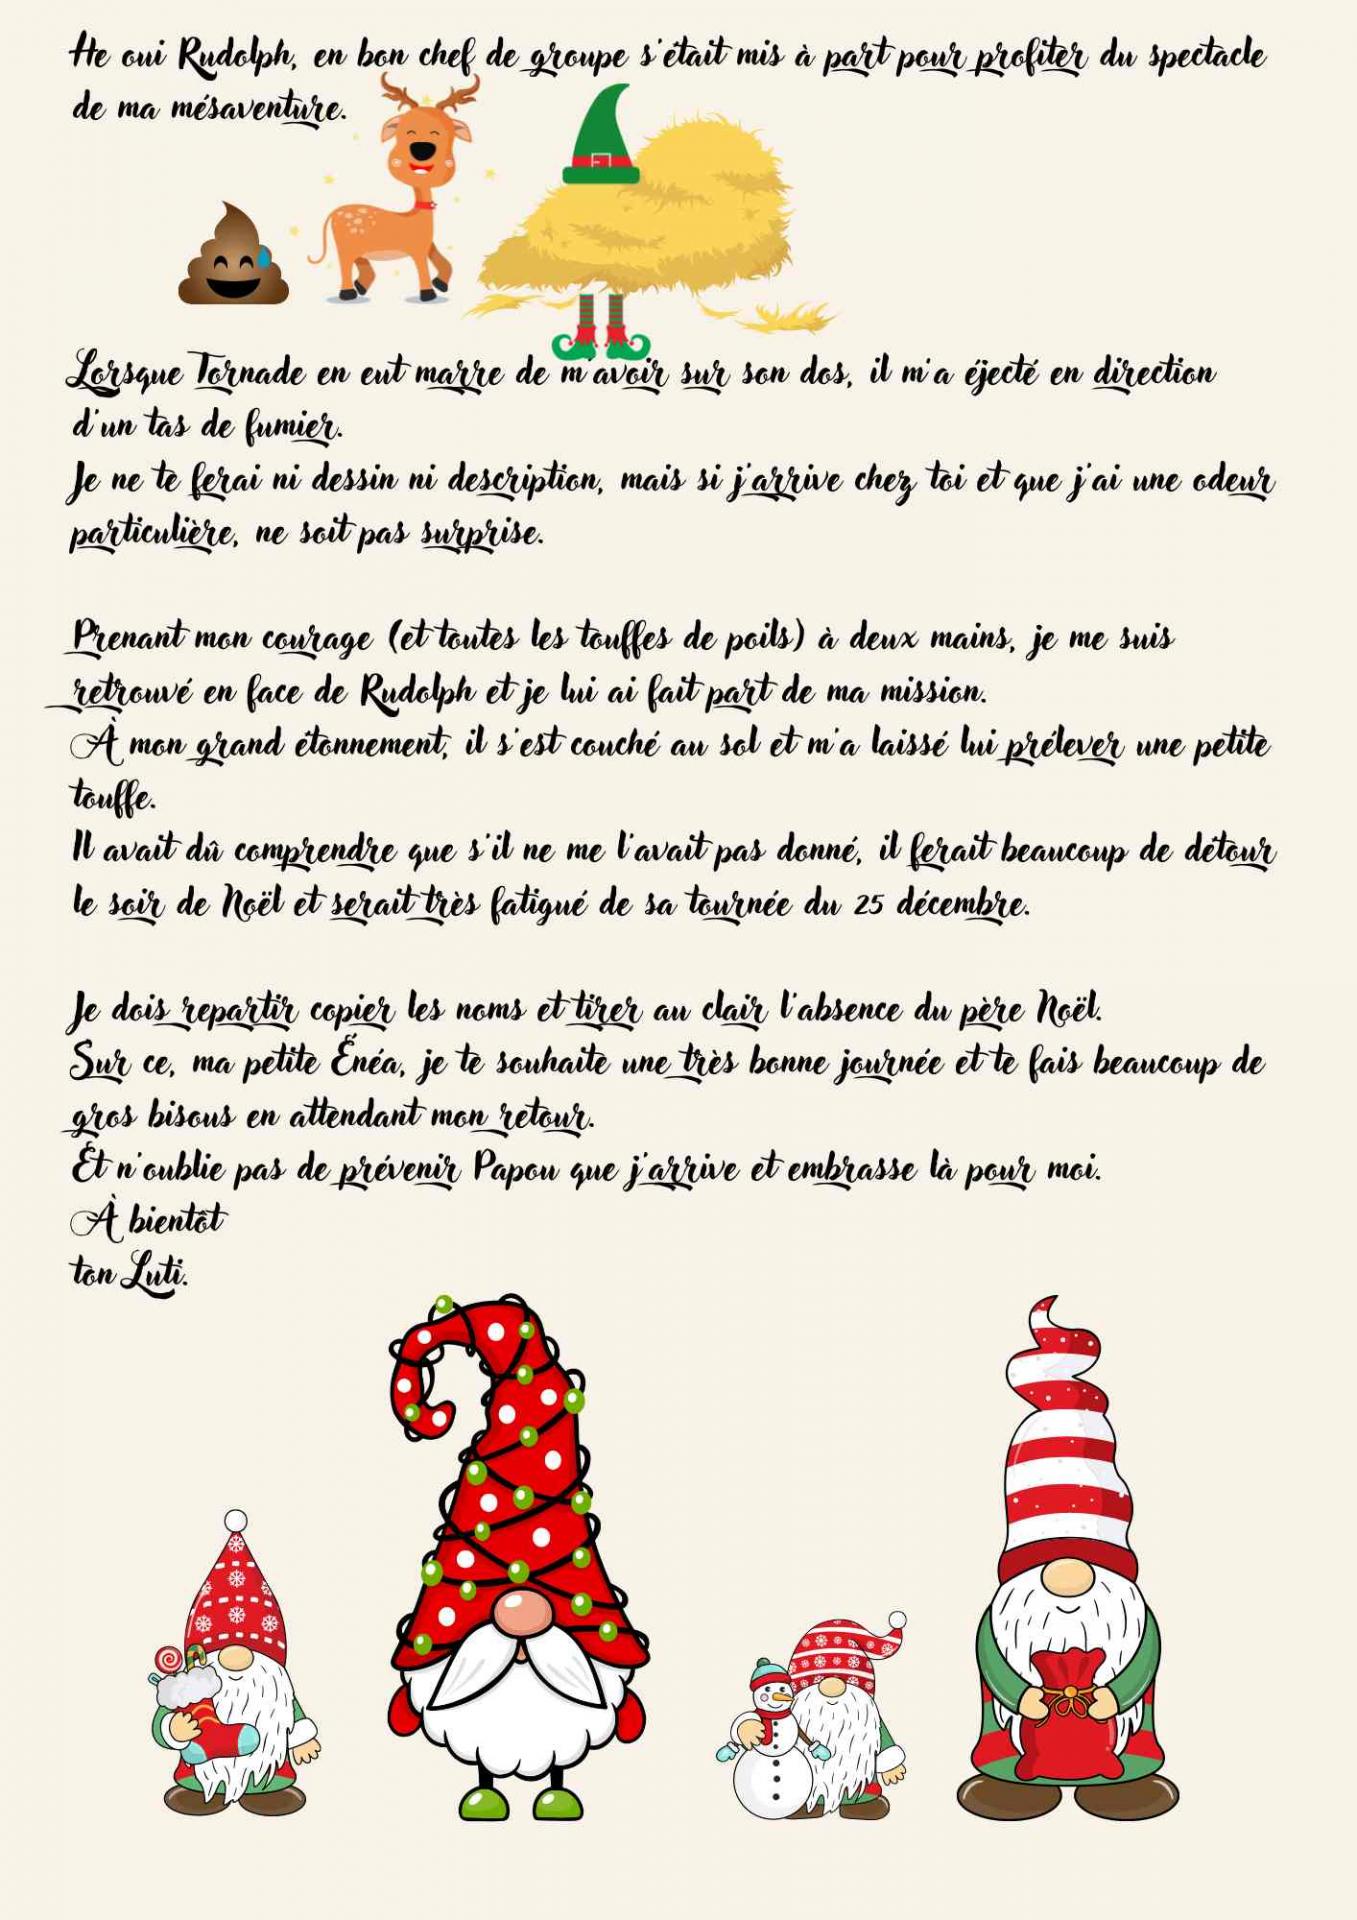 He oui Rudolph, en bon chef de groupe s'était mis à part pour profiter du spectacle
de ma mésaventure.
Lorsque Tornade en eut marre de m'avoir sur son dos, il m'a éjecté en direction
d'un tas de fumier.
Je ne te ferai ni dessin ni description, mais si j'arrive chez toi et que j'ai une odeur
particulière, ne soit pas surprise.
Prenant mon courage (et toutes les touffes de poils) à deux mains, je me suis
retrouvé en face de Rudolph et je lui ai fait part de ma mission.
À mon grand étonnement, il s'est couché au sol et m'a laissé lui prélever une petite
touffe.
Il avait dû comprendre que s'il ne me l'avait pas donné, il ferait beaucoup de détour
le soir de Noël et serait très fatigué de sa tournée du 25 décembre.
Je dois repartir copier les noms et tirer au clair l'absence du père Noël.
Sur ce, ma petite Énéa, je te souhaite une très bonne journée et te fais beaucoup de
gros bisous en attendant mon retour.
Et n'oublie pas de prévenir Papou que j'arrive et embrasse là pour moi.
À bientôt
ton Luti.